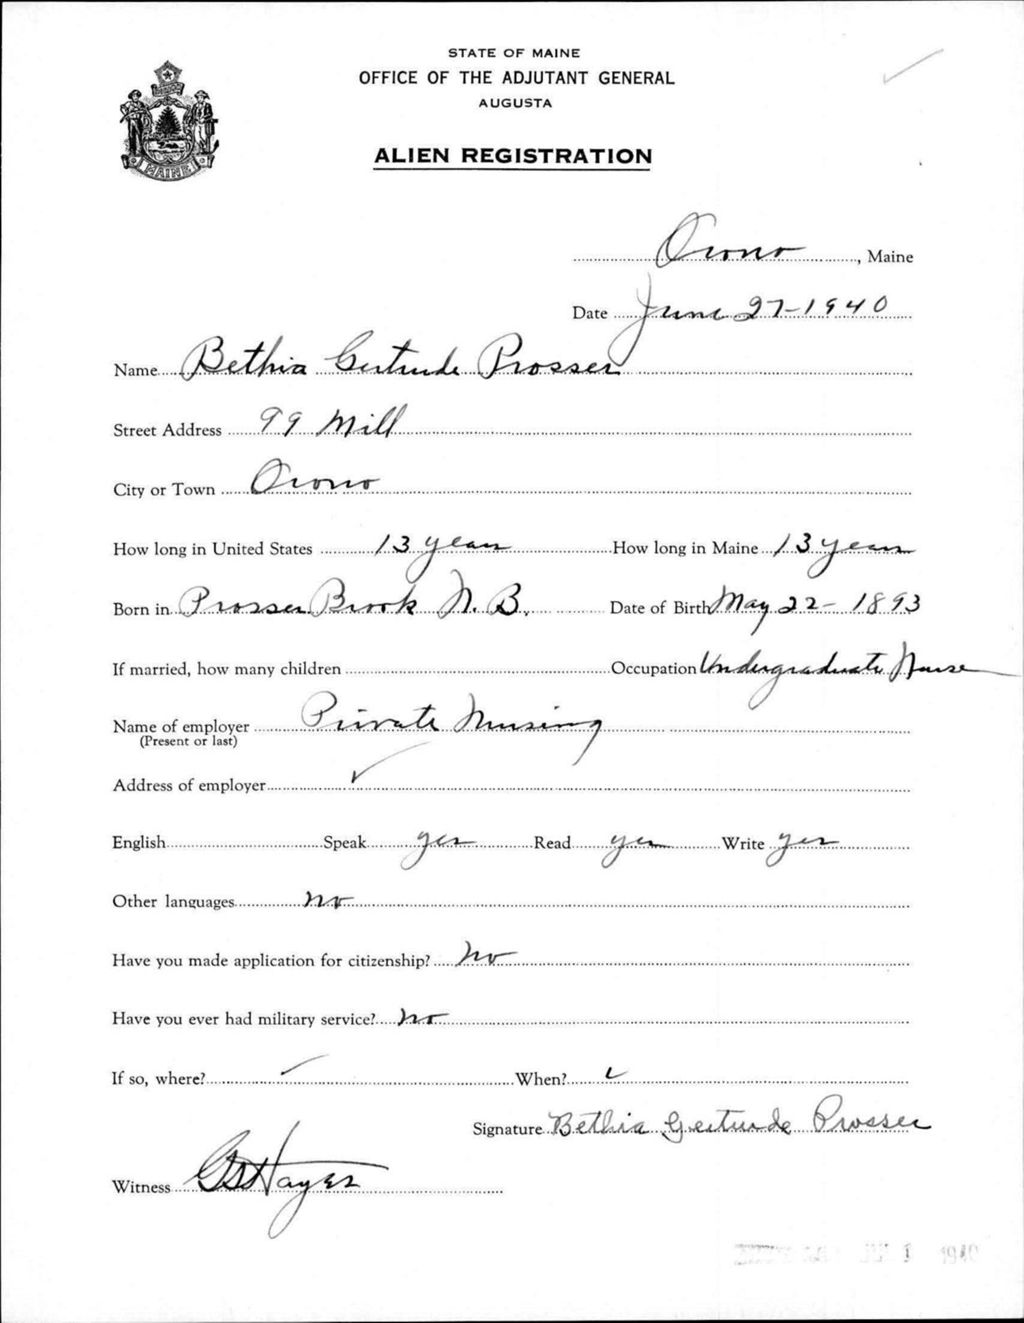 STATE OF MAINE
OFFICE OF THE ADJUTANT GENERAL
AUGUSTA
ALIEN REGISTRATION
MAINE
Orono, Maine
Date June 27-1940
Name Bethia Gertrude Prosser
Street Address 99 Mill
City or Town Orono
How long in United States 13 years How long in Maine 13 years
Born in Prosser Brook N. B. Date of Birth May 22-1893
If married, how many children Occupation Undergraduate Nurse
Name of employer Private Nursing
(Present or last)
Address of employer ✓
English Speak yes Read yes Write yes
Other languages no
Have you made application for citizenship? No
Have you ever had military service? No
If so, where? ✓ When? ✓
Signature Bethia Gertrude Prosser
Witness Hayes
1940